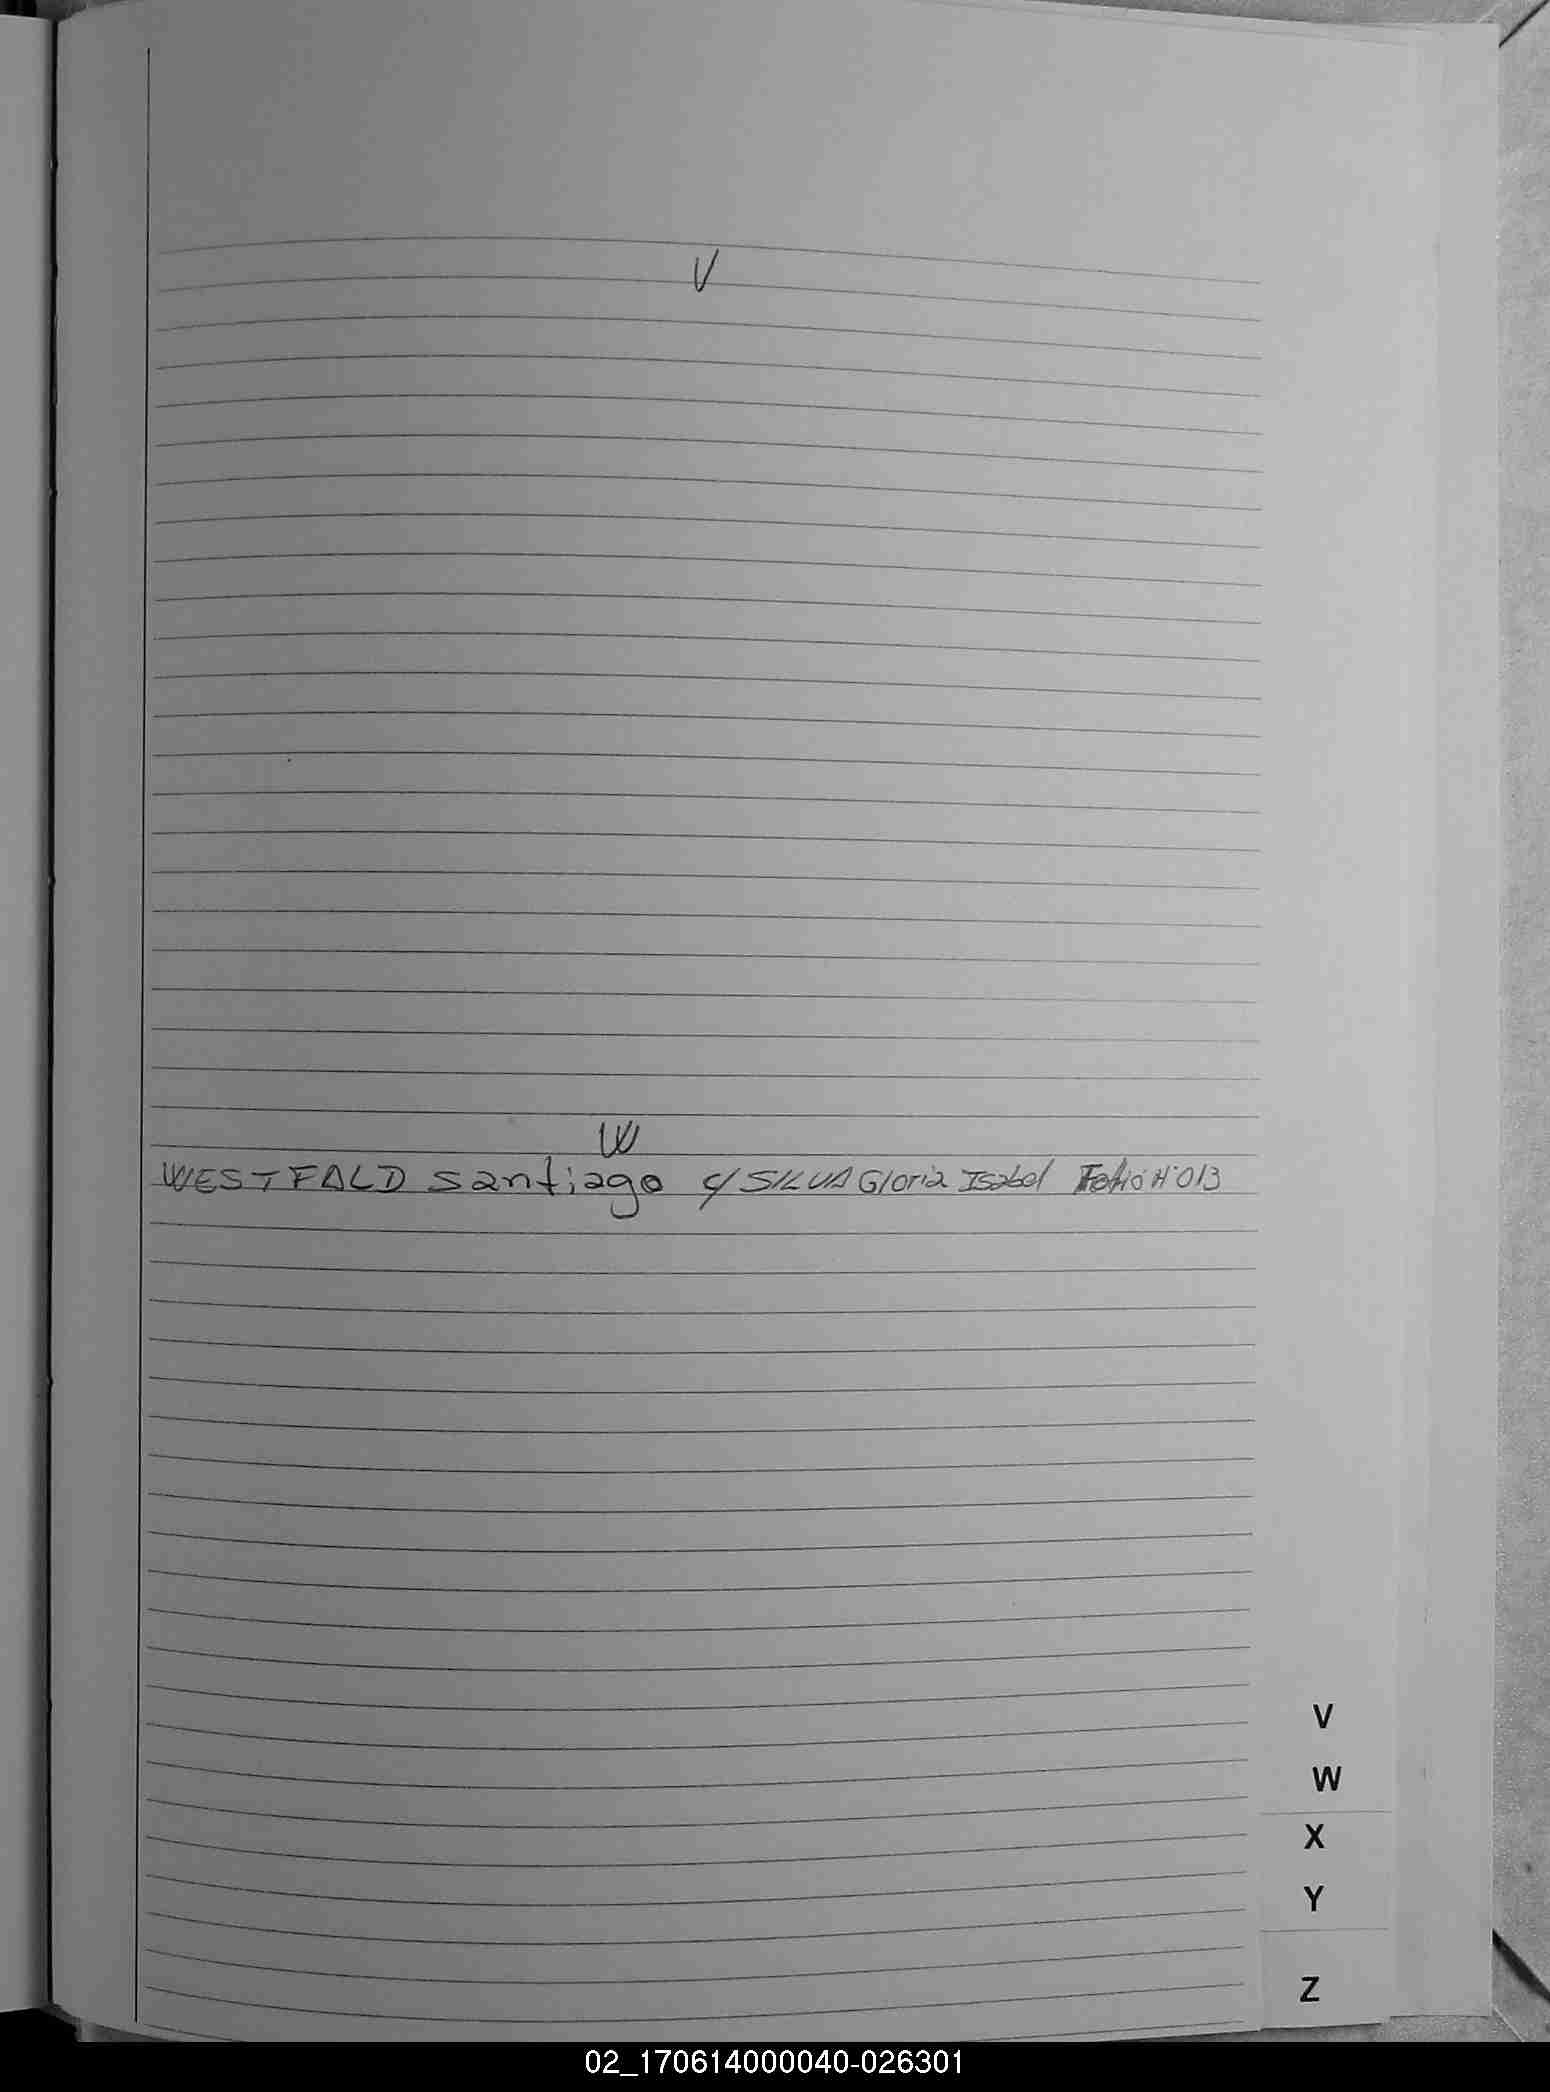 V
W
WESTFALD Santiago c/ SILVA Gloria Isabel Folio Nº 013
V
W
X
Y
Z
02_170614000040-026301